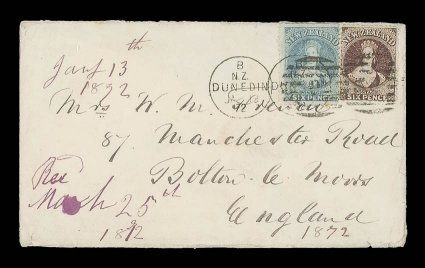 Jany 13th
1872
NEW ZEALAND
SIX PENCE
NEW ZEALAND
SIX PENCE
B
N.Z.
DUNEDIN
72
Mrs W. M.
87. Manchester Road
Bolton le Moors
England
1872
Rec
March 25th
1872